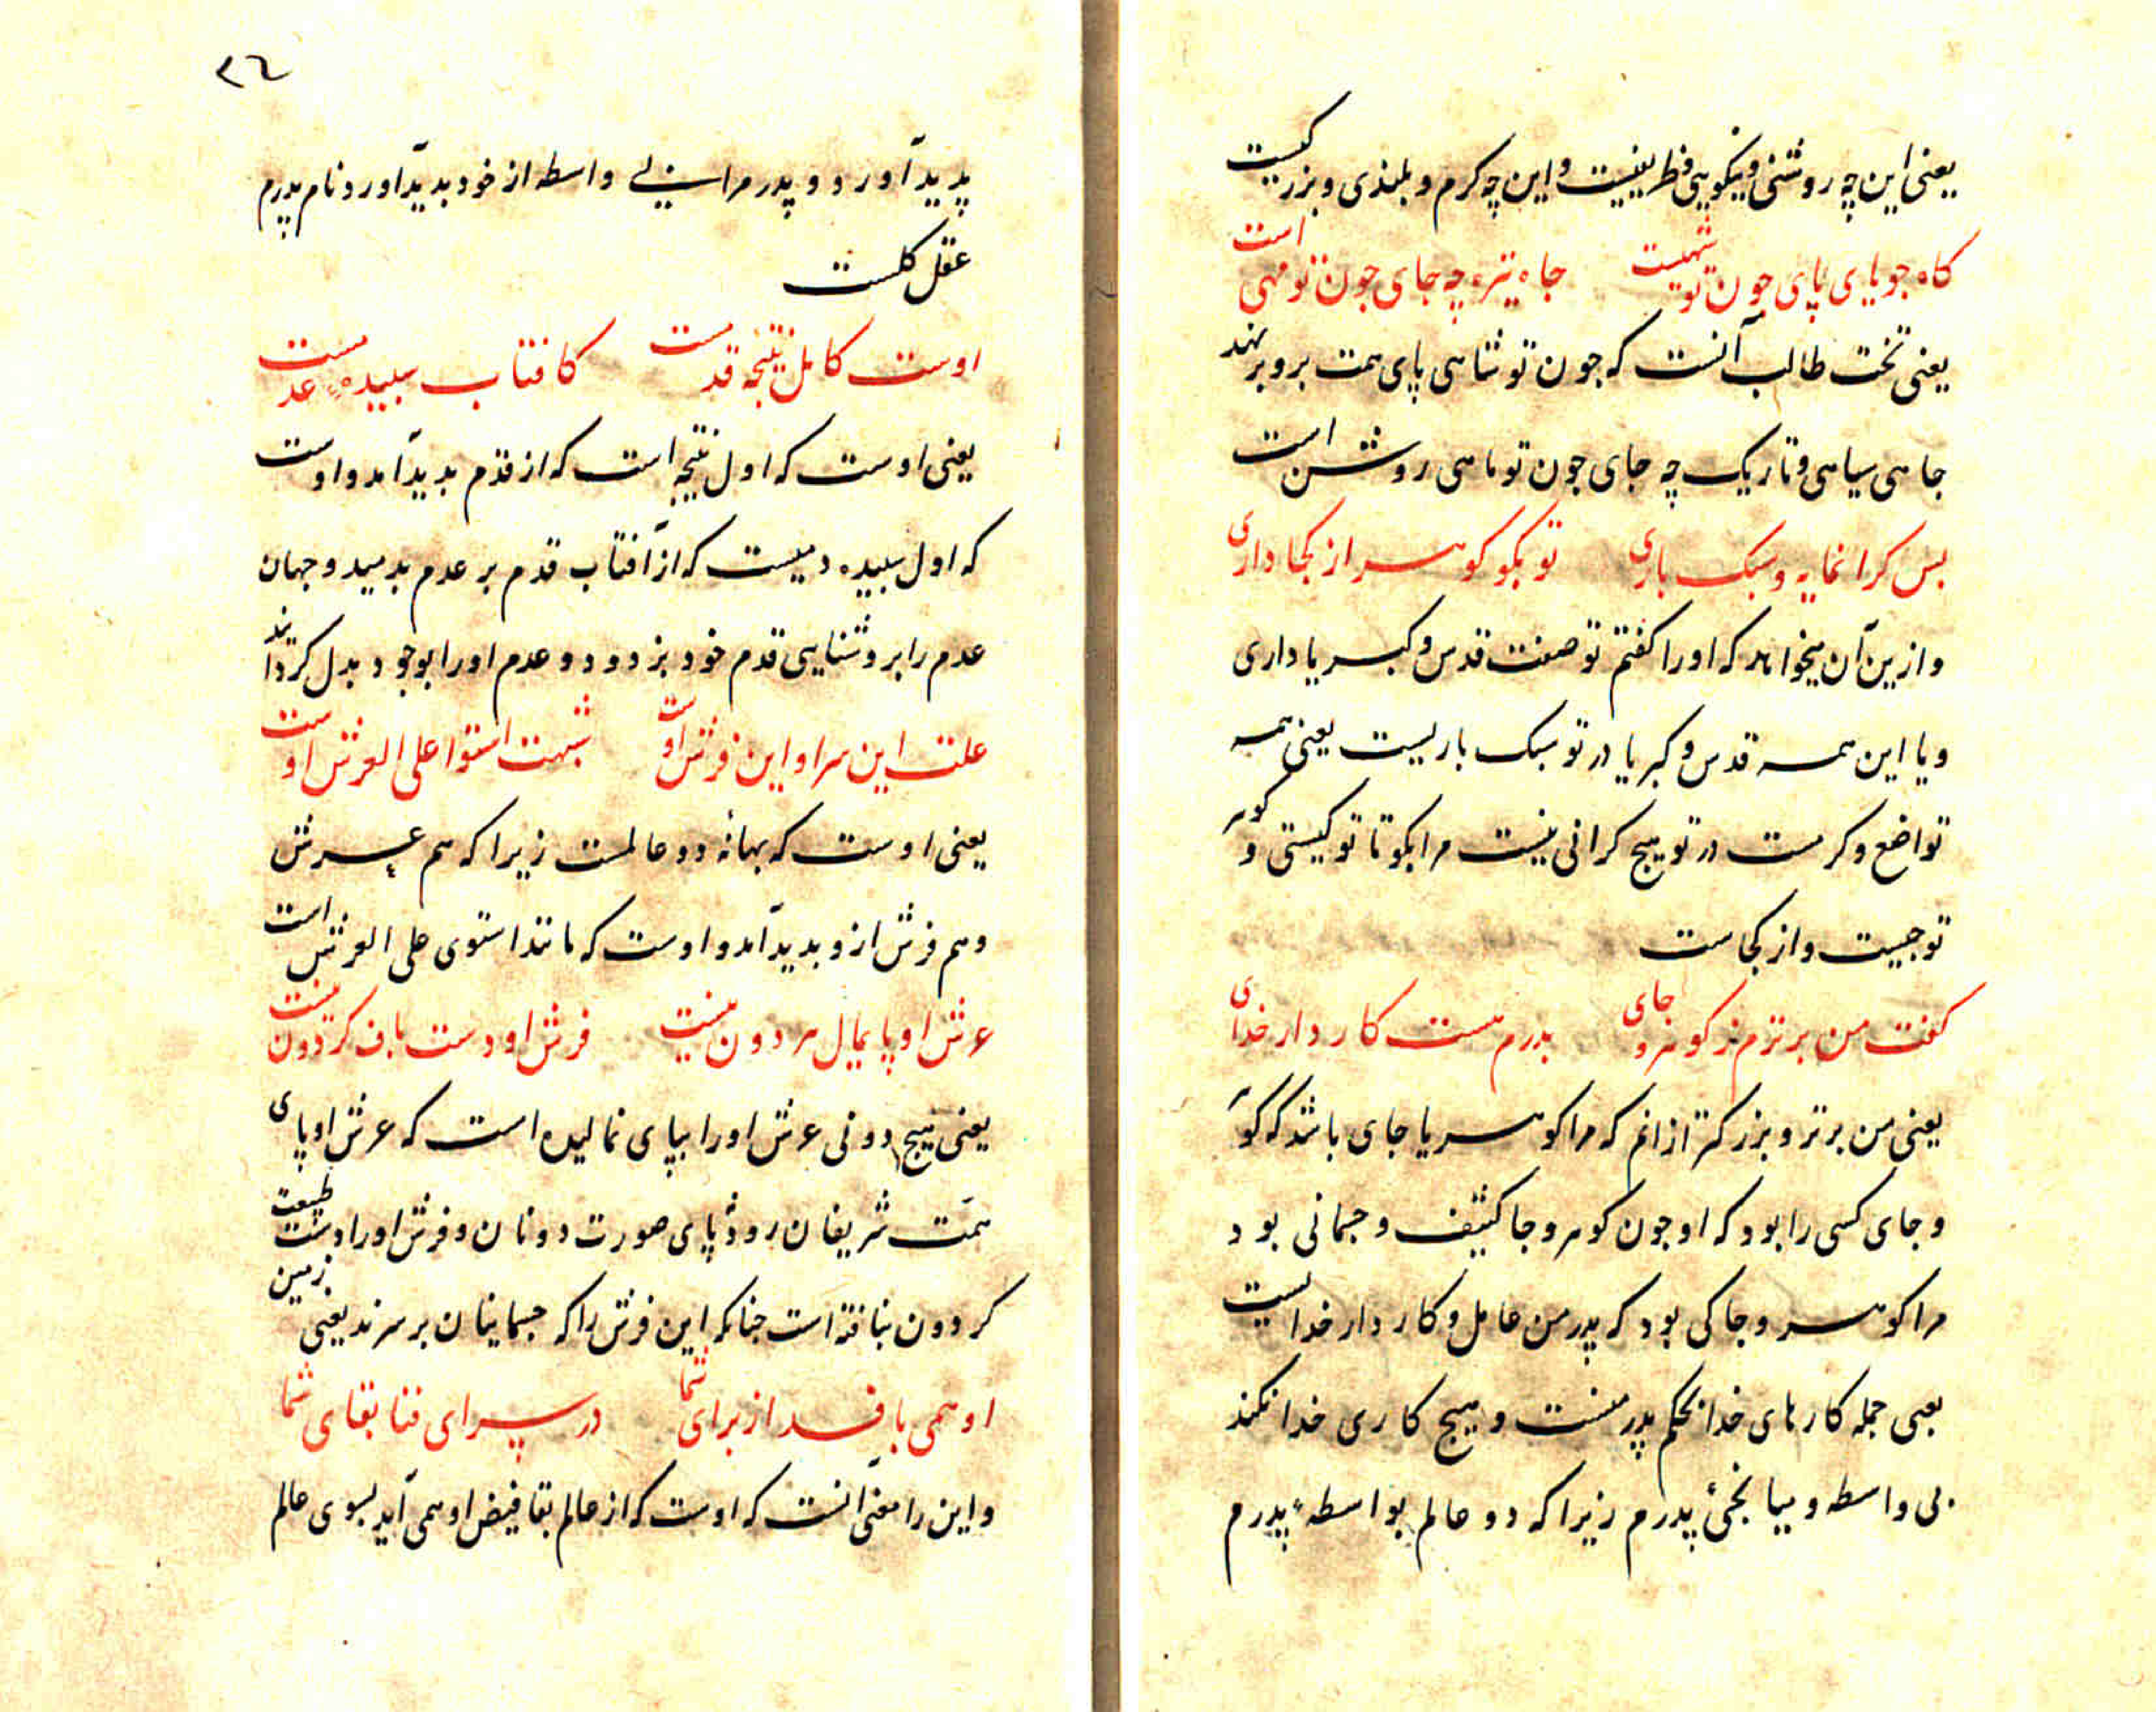 یعنی این چه روشنی و نیکویی و ظریفیست و این چه کرم و بلندی و بزرگیست
کاه جویای پای چون تو شهیست جاه تیره چه جای چون تو مهی است
یعنی تخت طالب آنست که چون تو شاهی پای همت برو برنهد
جاهی سیاهی و تاریک چه جای چون تو ماهی روشن است
بس کرانمایه و سبک باری تو بکو کوهر از کجا داری
و ازین آن میخواهد که اورا کفتم تو صفت قدس و کبریا داری
و با این همه قدس و کبریا در تو سبک باریست یعنی همه
تواضع و کرمست در تو هیچ کرانی نیست مرا بکو تا تو کیستی و کوهر
تو چیست و از کجاست
کفت من برترم ز کوهر و جای پدرم هست کاردار خدای
یعنی من برتر و بزرکتر ازانم که مرا کوهر یا جای باشد که کوهر
و جای کسی را بود که او چون کوهر و جا کثیف و جسمانی بود
مرا کوهر و جا کی بود که پدر من عامل و کاردار خداایست
یعنی جمله کارهای خدا بحکم پدر منست و هیچ کاری خدا نکند
بی واسطه و میانجیٔ پدرم زیرا که دو عالم بواسطهٔ پدرم
٢٦
پدید آورد و پدر مرا بی واسطه از خود پدید آورد و نام پدرم
عقل کلست
اوست کامل نتیجه قدمست کافتاب سپیده عدمست
یعنی اوست که اول نتیجه است که از قدم پدید آمد و اوست
که اول سپیده دمیست که از آفتاب قدم بر عدم بدمید و جهان
عدم را بروشنایی قدم خود بزدود و عدم اورا بوجود بدل کردانید
علت این سرا و این فرش اوست شبهت استوا علی العرش اوست
یعنی اوست که بهانهٔ دو عالمست زیرا که هم عرش
و هم فرش ازو پدید آمد و اوست که مانند استوی علی العرش است
عرش او پایمال هر دون نیست فرش او دست باف کردون نیست
یعنی هیچ دونی عرش اورا بپای نمالیده است که عرش او پای
همّت شریفان رود پای صورت دونان و فرش اورا دست طبیعت
کردون نبافته است چنانکه این فرش را که جسمانیان برسرند یعنی زمین
او همی بافد از برای شما در سرای فنا بقای شما
و این را معنی آنست که اوست که از عالم بقا فیض او همی آید بسوی عالم